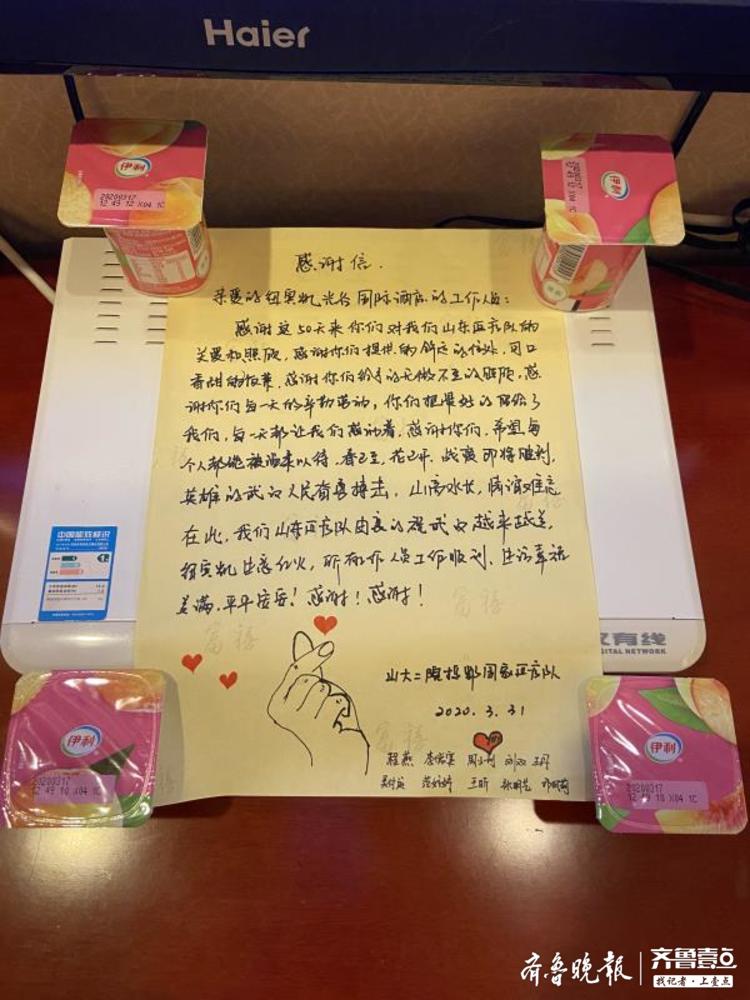 Haier
伊利
20200317
12 49 12 X04 1C
伊利
20200317
感谢信.
亲爱的纽宾凯光谷国际酒店的工作人员：
感谢这50天来你们对我们山东医疗队的
关爱和照顾，感谢你们提供的舒适的住处，可口
香甜的饭菜，感谢你们给予的无微不至的照顾，感
谢你们每一天的辛勤劳动，你们把最好的留给了
我们，每一天都让我们感动着，感谢你们，希望每
个人都能被温柔以待，春已至，花已开，战疫即将胜利，
英雄的武汉人民奋勇搏击，山高水长，情谊难忘
在此，我们山东医疗队由衷的祝武汉越来越美，
纽宾凯生意红火，所有工作人员工作顺利、生活幸福
美满、平平安安！感谢！感谢！
中国能效标识
有线
DIGITAL NETWORK
山大二院援鄂国家医疗队
2020.3.31
程燕
王昕 张明芝
伊利
20200317
12 49 10 X04 1C
伊利
20200317
12 49 10 X04 1C
齐鲁晚报
齐鲁壹点
找记者·上壹点